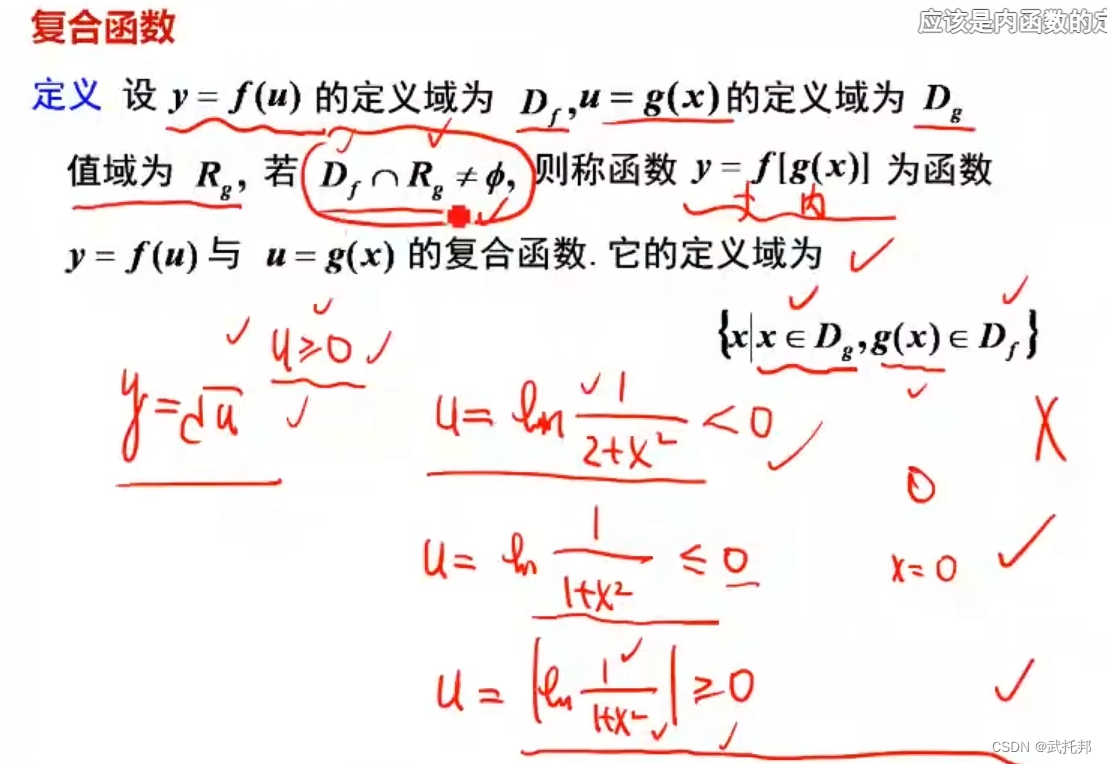 复合函数
应该是内函数的定
定义 设 y = f(u) 的定义域为 D_f, u = g(x) 的定义域为 D_g
值域为 R_g, 若 D_f ∩ R_g ≠ ϕ, 则称函数 y = f[g(x)] 为函数
内
y = f(u) 与 u = g(x) 的复合函数. 它的定义域为
{x|x ∈ D_g, g(x) ∈ D_f}
u≥0
y=√u
u= ln 1/(2+x²) < 0
X
0
u= ln 1/(1+x²) ≤ 0
x=0
u = |ln 1/(1+x²)| ≥ 0
CSDN @武托邦